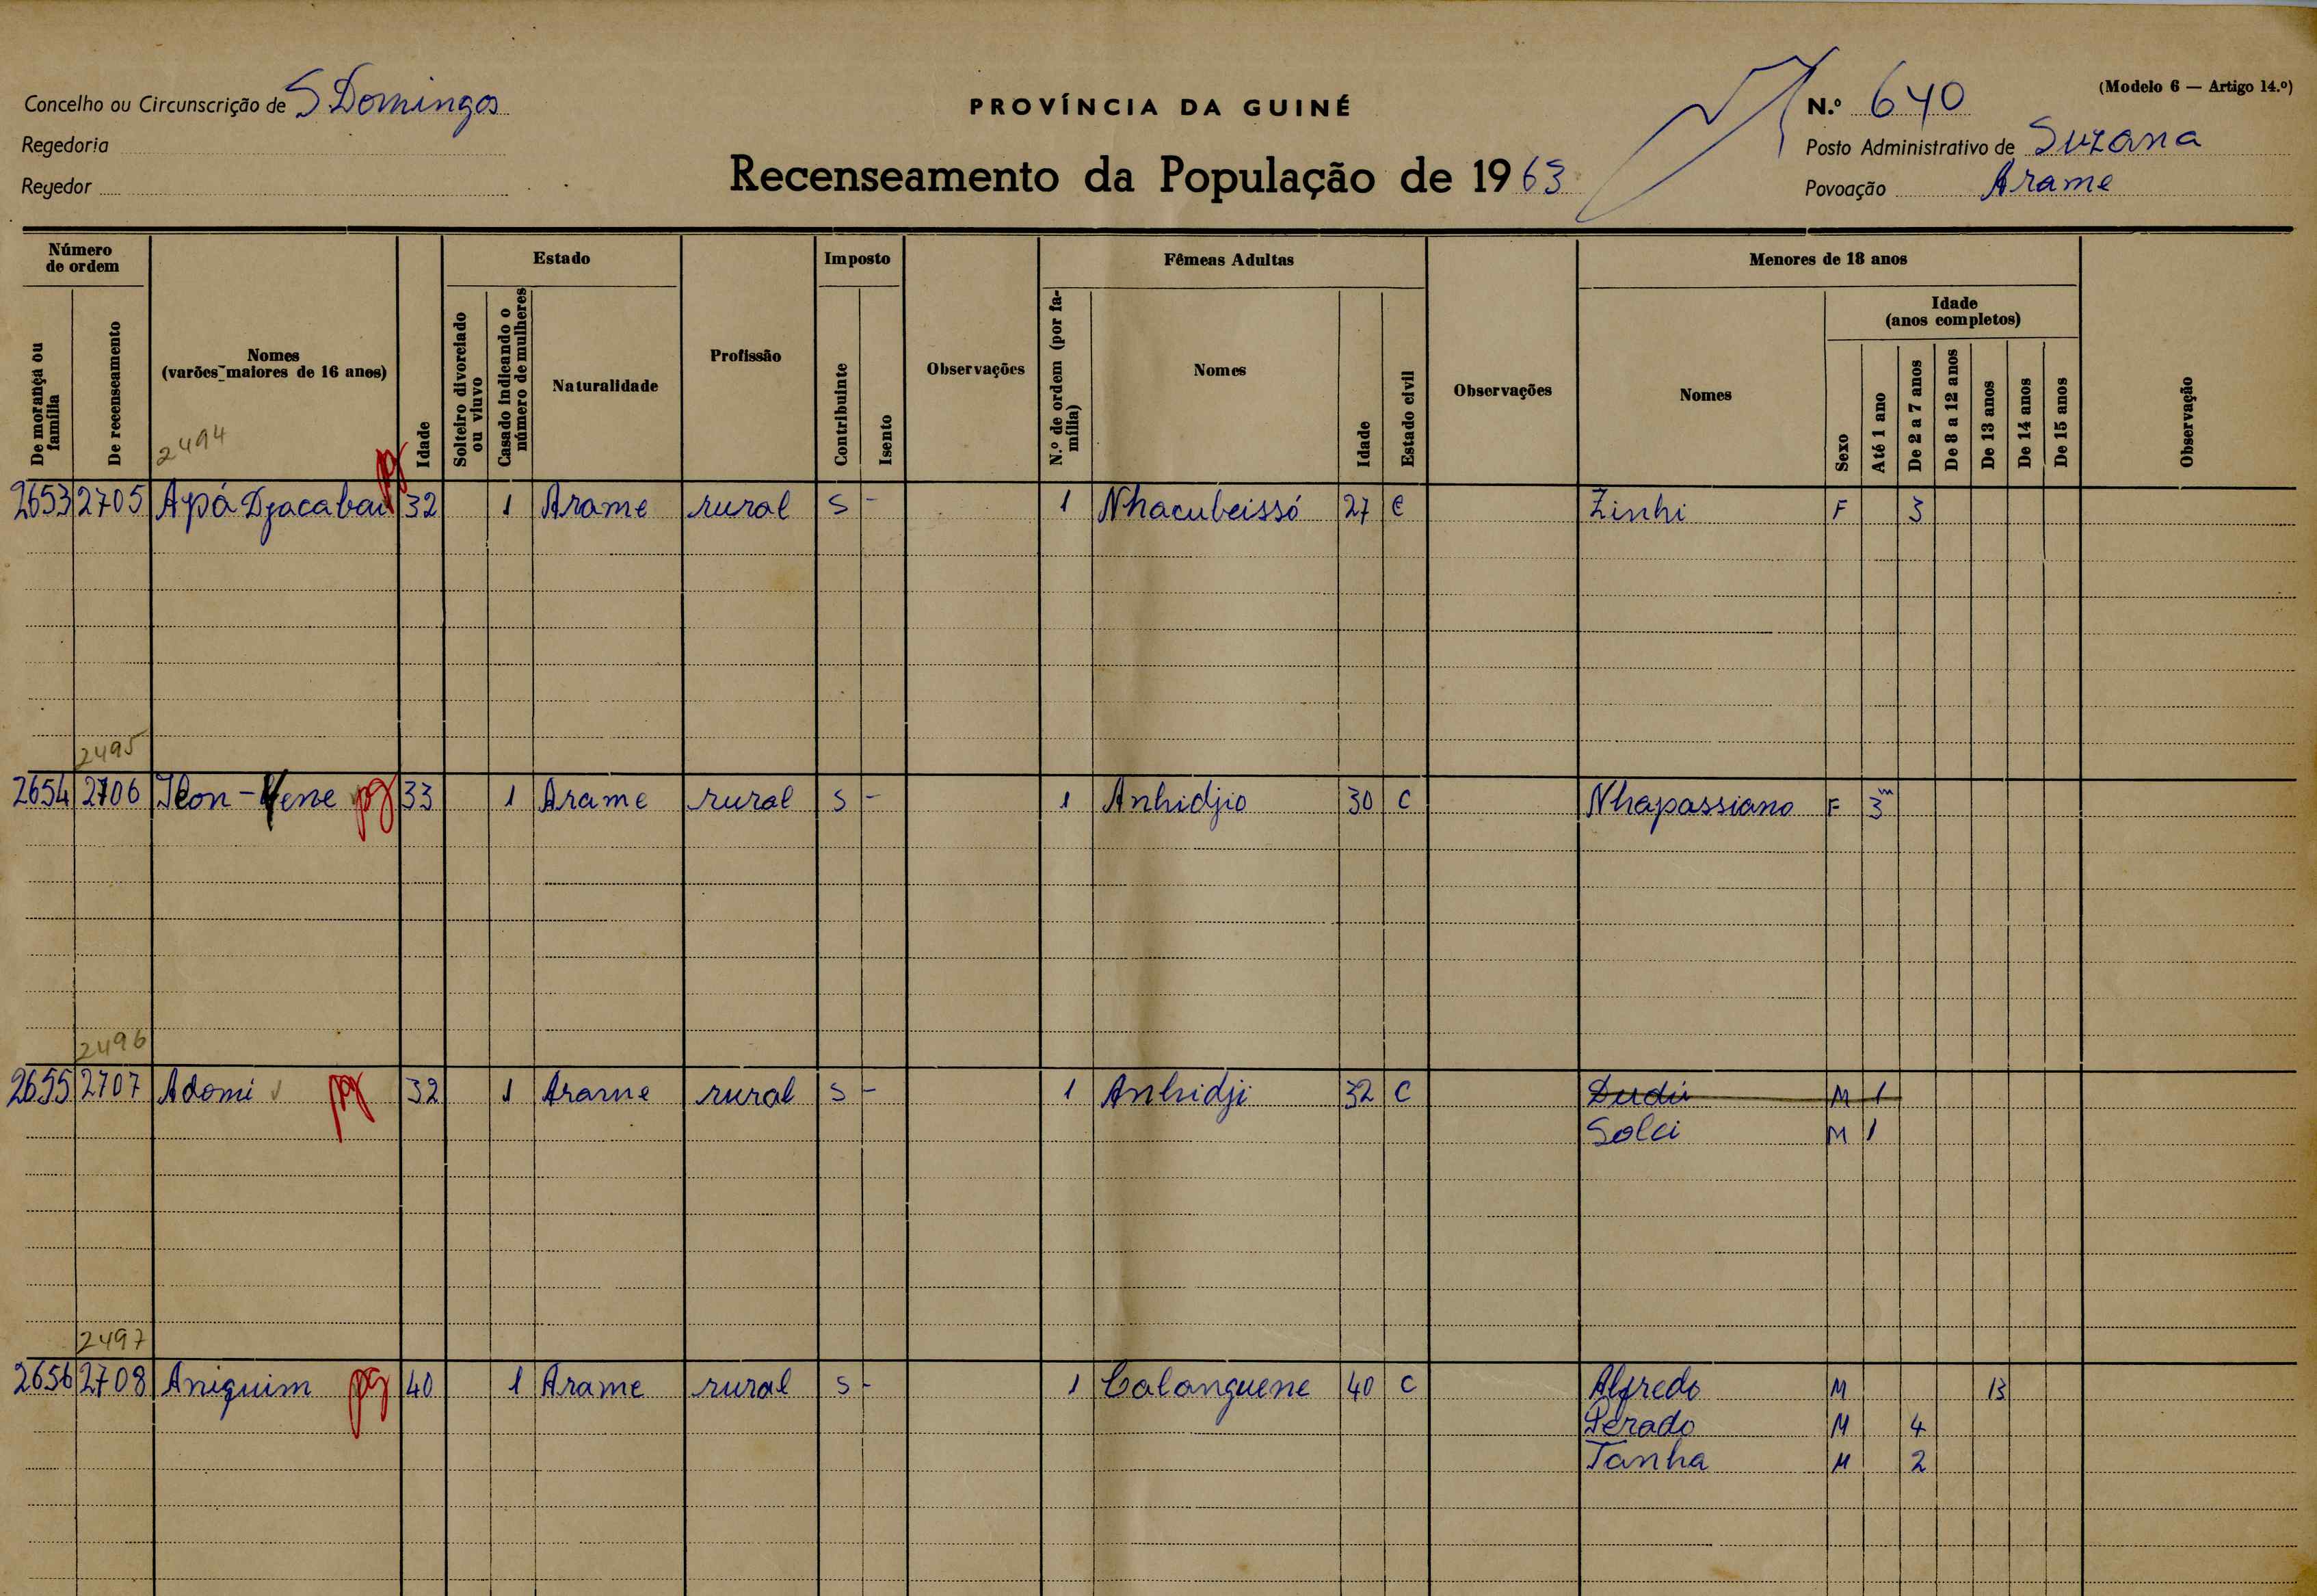 (Modelo 6 — Artigo 14.º)
Concelho ou Circunscrição de S Domingos
PROVÍNCIA DA GUINÉ
N.º 640
Regedoria
Posto Administrativo de Suzana
Regedor
Recenseamento da População de 1963
Povoação Arame
Número de ordem
De morança ou família
De recenseamento
Nomes
(varões maiores de 16 anos)
Idade
Estado
Solteiro divorciado ou viuvo
Casado indicando o número de mulheres
Naturalidade
Profissão
Imposto
Contribuinte
Isento
Observações
Fêmeas Adultas
N.º de ordem (por família)
Nomes
Idade
Estado civil
Observações
Menores de 18 anos
Nomes
Sexo
Idade
(anos completos)
Até 1 ano
De 2 a 7 anos
De 8 a 12 anos
De 13 anos
De 14 anos
De 15 anos
Observação
2494
2653 2705 Apá Djacabau pg 32 1 Arame rural S - 1 Nhacubeissó 27 C Zinhi F 3
2495
2654 2706 pg 33 1 Arame rural S - 1 Anhidjio 30 C Nhapassiano F 3m
2496
2655 2707 Adomi pg 32 1 Arame rural S - 1 Anhidji 32 C Dudú M 1
Solei M 1
2497
2656 2708 Aniquim pg 40 1 Arame rural S - 1 Calanguene 40 C Alfredo M 13
Perado M 4
Tanha M 2